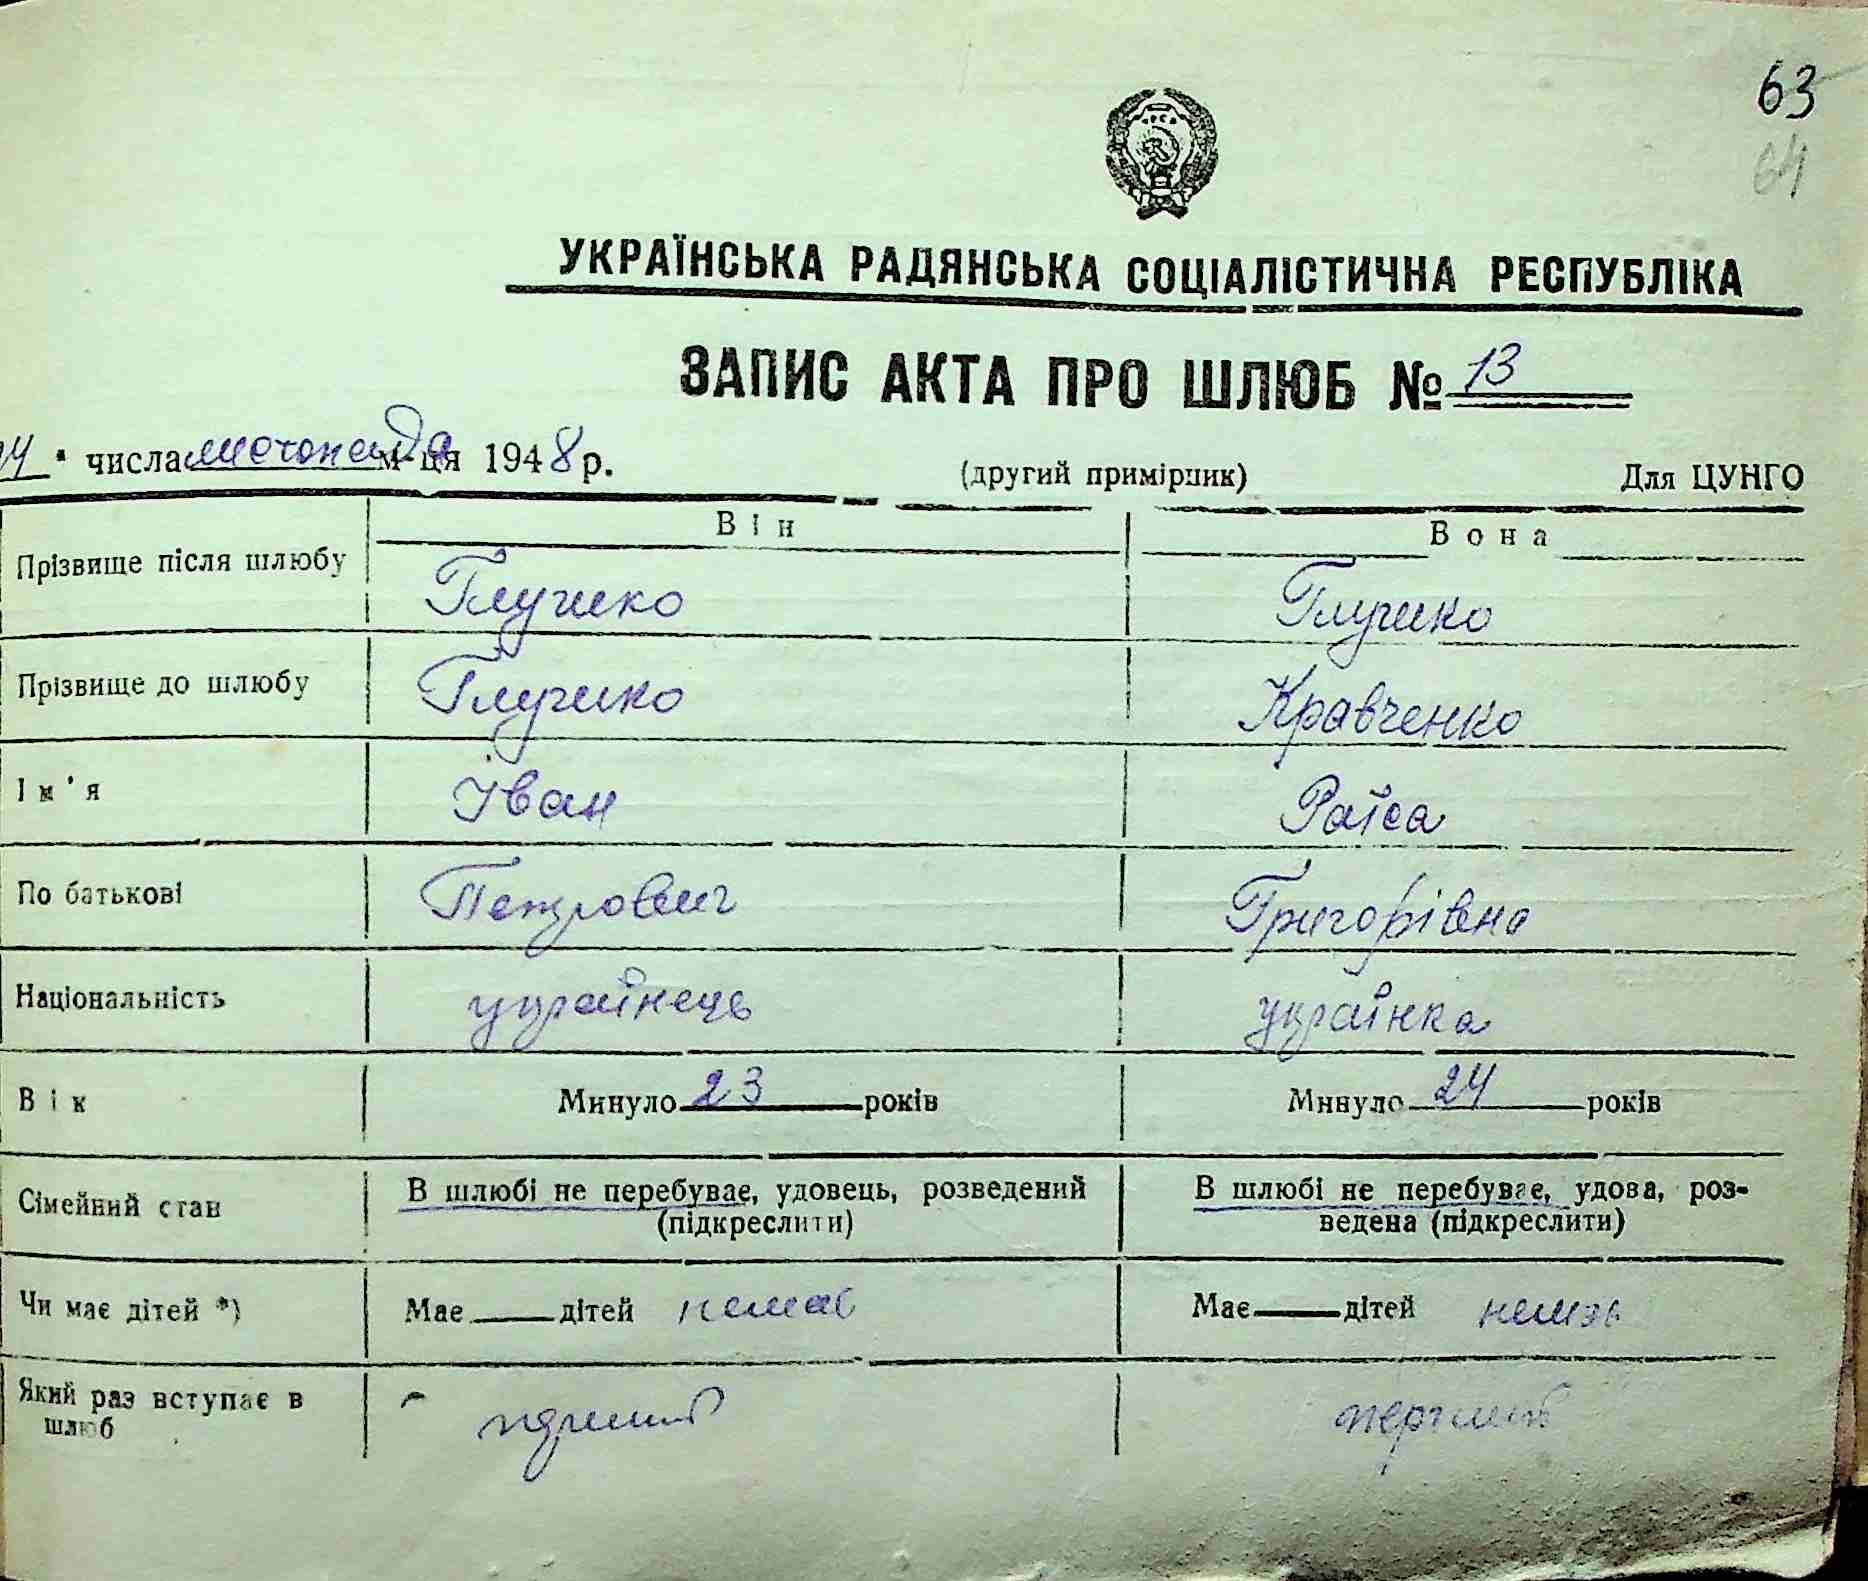 63
64
УКРАЇНСЬКА РАДЯНСЬКА СОЦІАЛІСТИЧНА РЕСПУБЛІКА
ЗАПИС АКТА ПРО ШЛЮБ № 13
числа листопада м-ця 1948 р. (другий примірник) Для ЦУНГО
Він Вона
Прізвище після шлюбу
Прізвище до шлюбу Кравченко
Ім'я Іван Раїса
По батькові Петрович Григорівна
Національність українець українка
Вік Минуло 23 років Минуло 24 років
Сімейний стан В шлюбі не перебуває, удовець, розведений (підкреслити) В шлюбі не перебуває, удова, роз-
ведена (підкреслити)
Чи має дітей *) Має дітей немає Має дітей немає
Який раз вступає в
шлюб перший перший